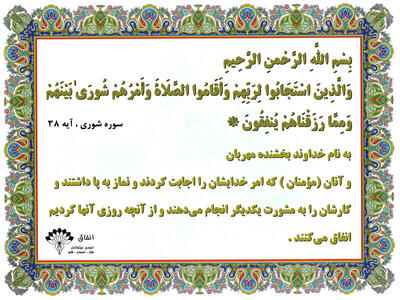 بِسْمِ اللَّهِ الرَّحْمنِ الرَّحِيمِ
وَالَّذِينَ اسْتَجَابُوا لِرَبِّهِمْ وَأَقَامُوا الصَّلاةَ وَأَمْرُهُمْ شُورَى بَيْنَهُمْ
وَمِمَّا رَزَقْنَاهُمْ يُنفِقُونَ
سوره شوری ، آیه ۳۸
به نام خداوند بخشنده مهربان
و آنان (مؤمنان ) که امر خدایشان را اجابت کردند و نماز به پا داشتند و
کارشان را به مشورت یکدیگر انجام می‌دهند و از آنچه روزی آنها کردیم
انفاق می‌کنند .
انفاق